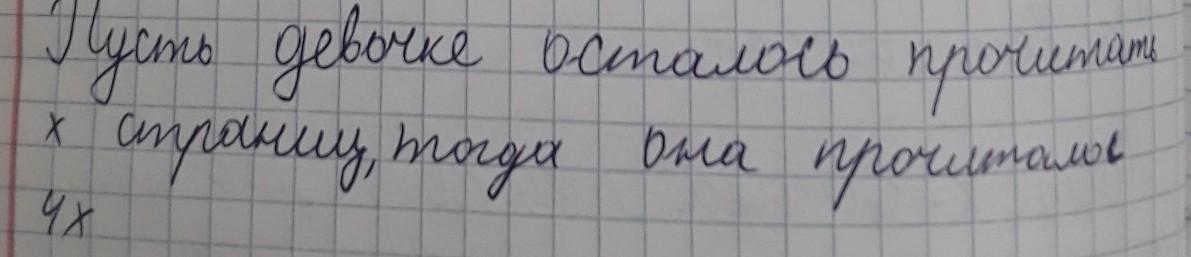 Пусть девочке осталось прочитать
х страниц, тогда она прочитала
4х